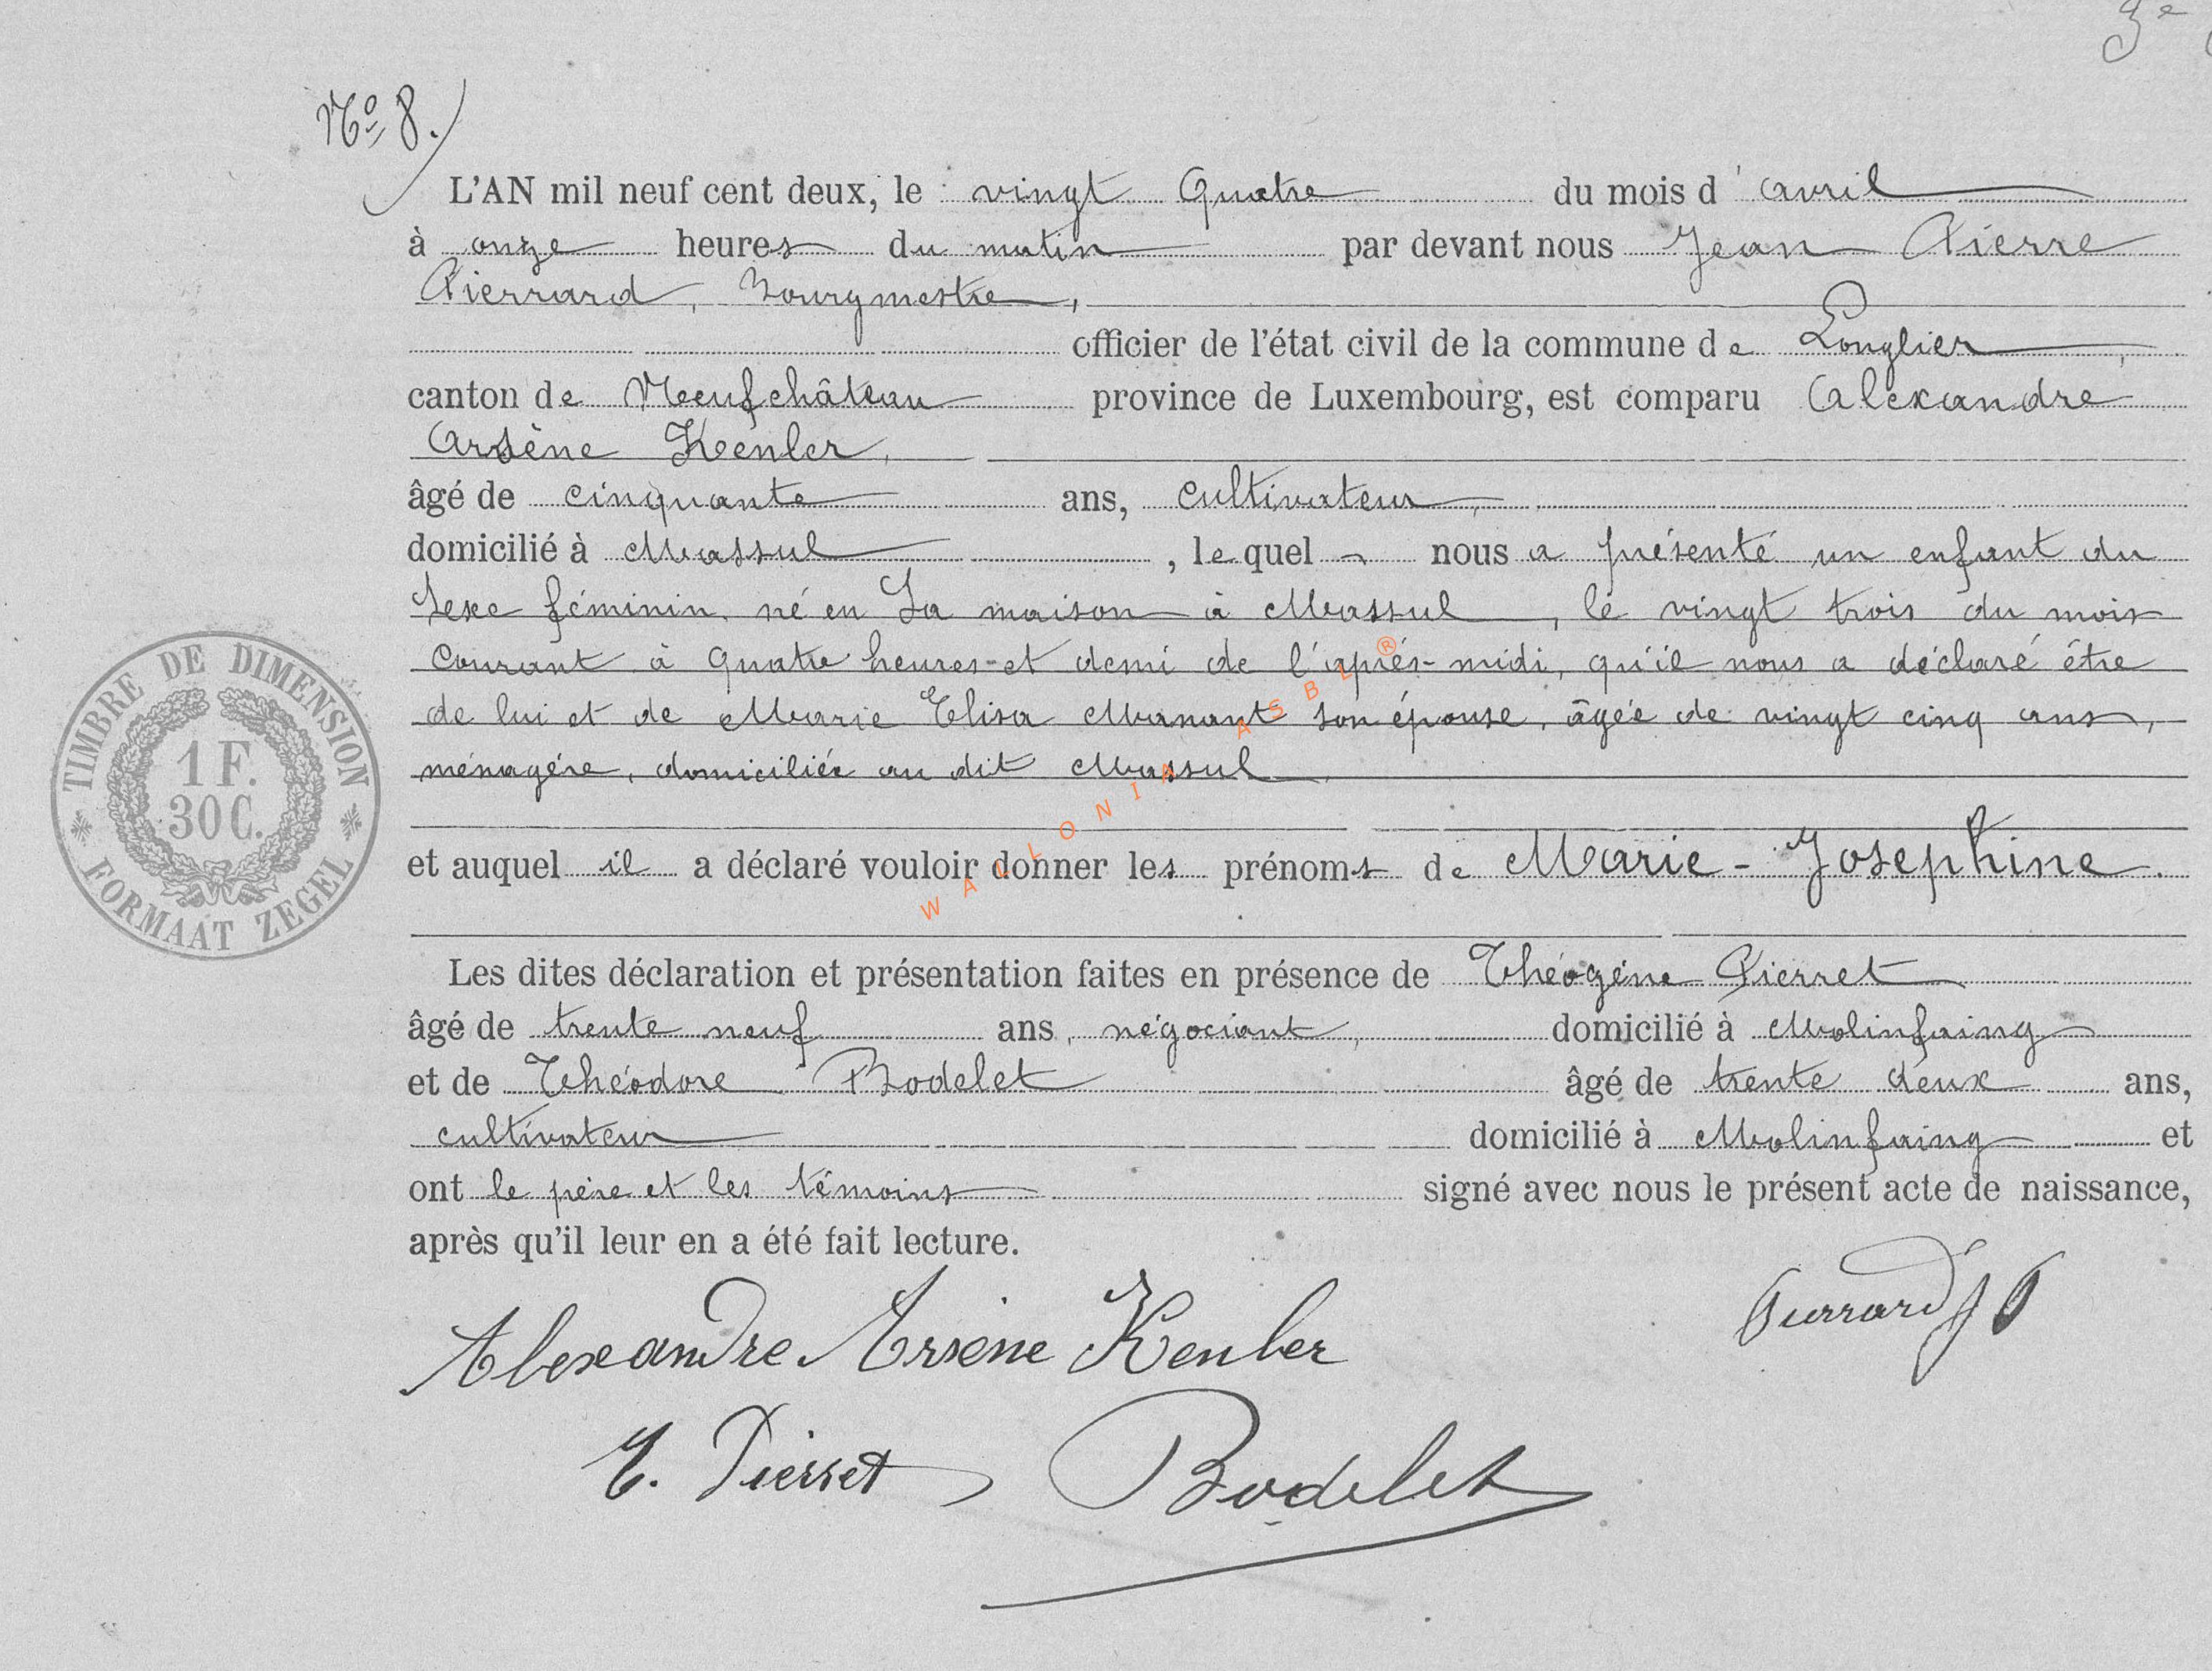 3e
No 8.
L'AN mil neuf cent deux, le vingt Quatre du mois d'avril
à onze heures du matin par devant nous Jean Pierre
Pierrard, Bourgmestre,
officier de l'état civil de la commune de Longlier,
canton de Neufchâteau province de Luxembourg, est comparu Alexandre
Arsène Kenler,
âgé de cinquante ans, cultivateur,
domicilié à Massul, lequel nous a présenté un enfant du
sexe féminin, né en Sa maison à Massul, le vingt trois du mois
courant à quatre heures et demi de l'après-midi, qu'il nous a déclaré être
de lui et de Marie Elisa Manant son épouse, âgée de vingt cinq ans,
ménagère, domiciliée au dit Massul.
et auquel il a déclaré vouloir donner les prénoms de Marie-Josephine.
Les dites déclaration et présentation faites en présence de Théogène Pierret
âgé de trente neuf ans, négociant, domicilié à Molinfaing
et de Théodore Bodelet âgé de trente deux ans,
cultivateur domicilié à Molinfaing et
ont le père et les témoins signé avec nous le présent acte de naissance,
après qu'il leur en a été fait lecture.
Alexandre Arsène Kenler
Pierrard J P
T. Pierret Bodelet
TIMBRE DE DIMENSION
1 F.
30 C.
FORMAAT ZEGEL
WALLONIA ASBL®